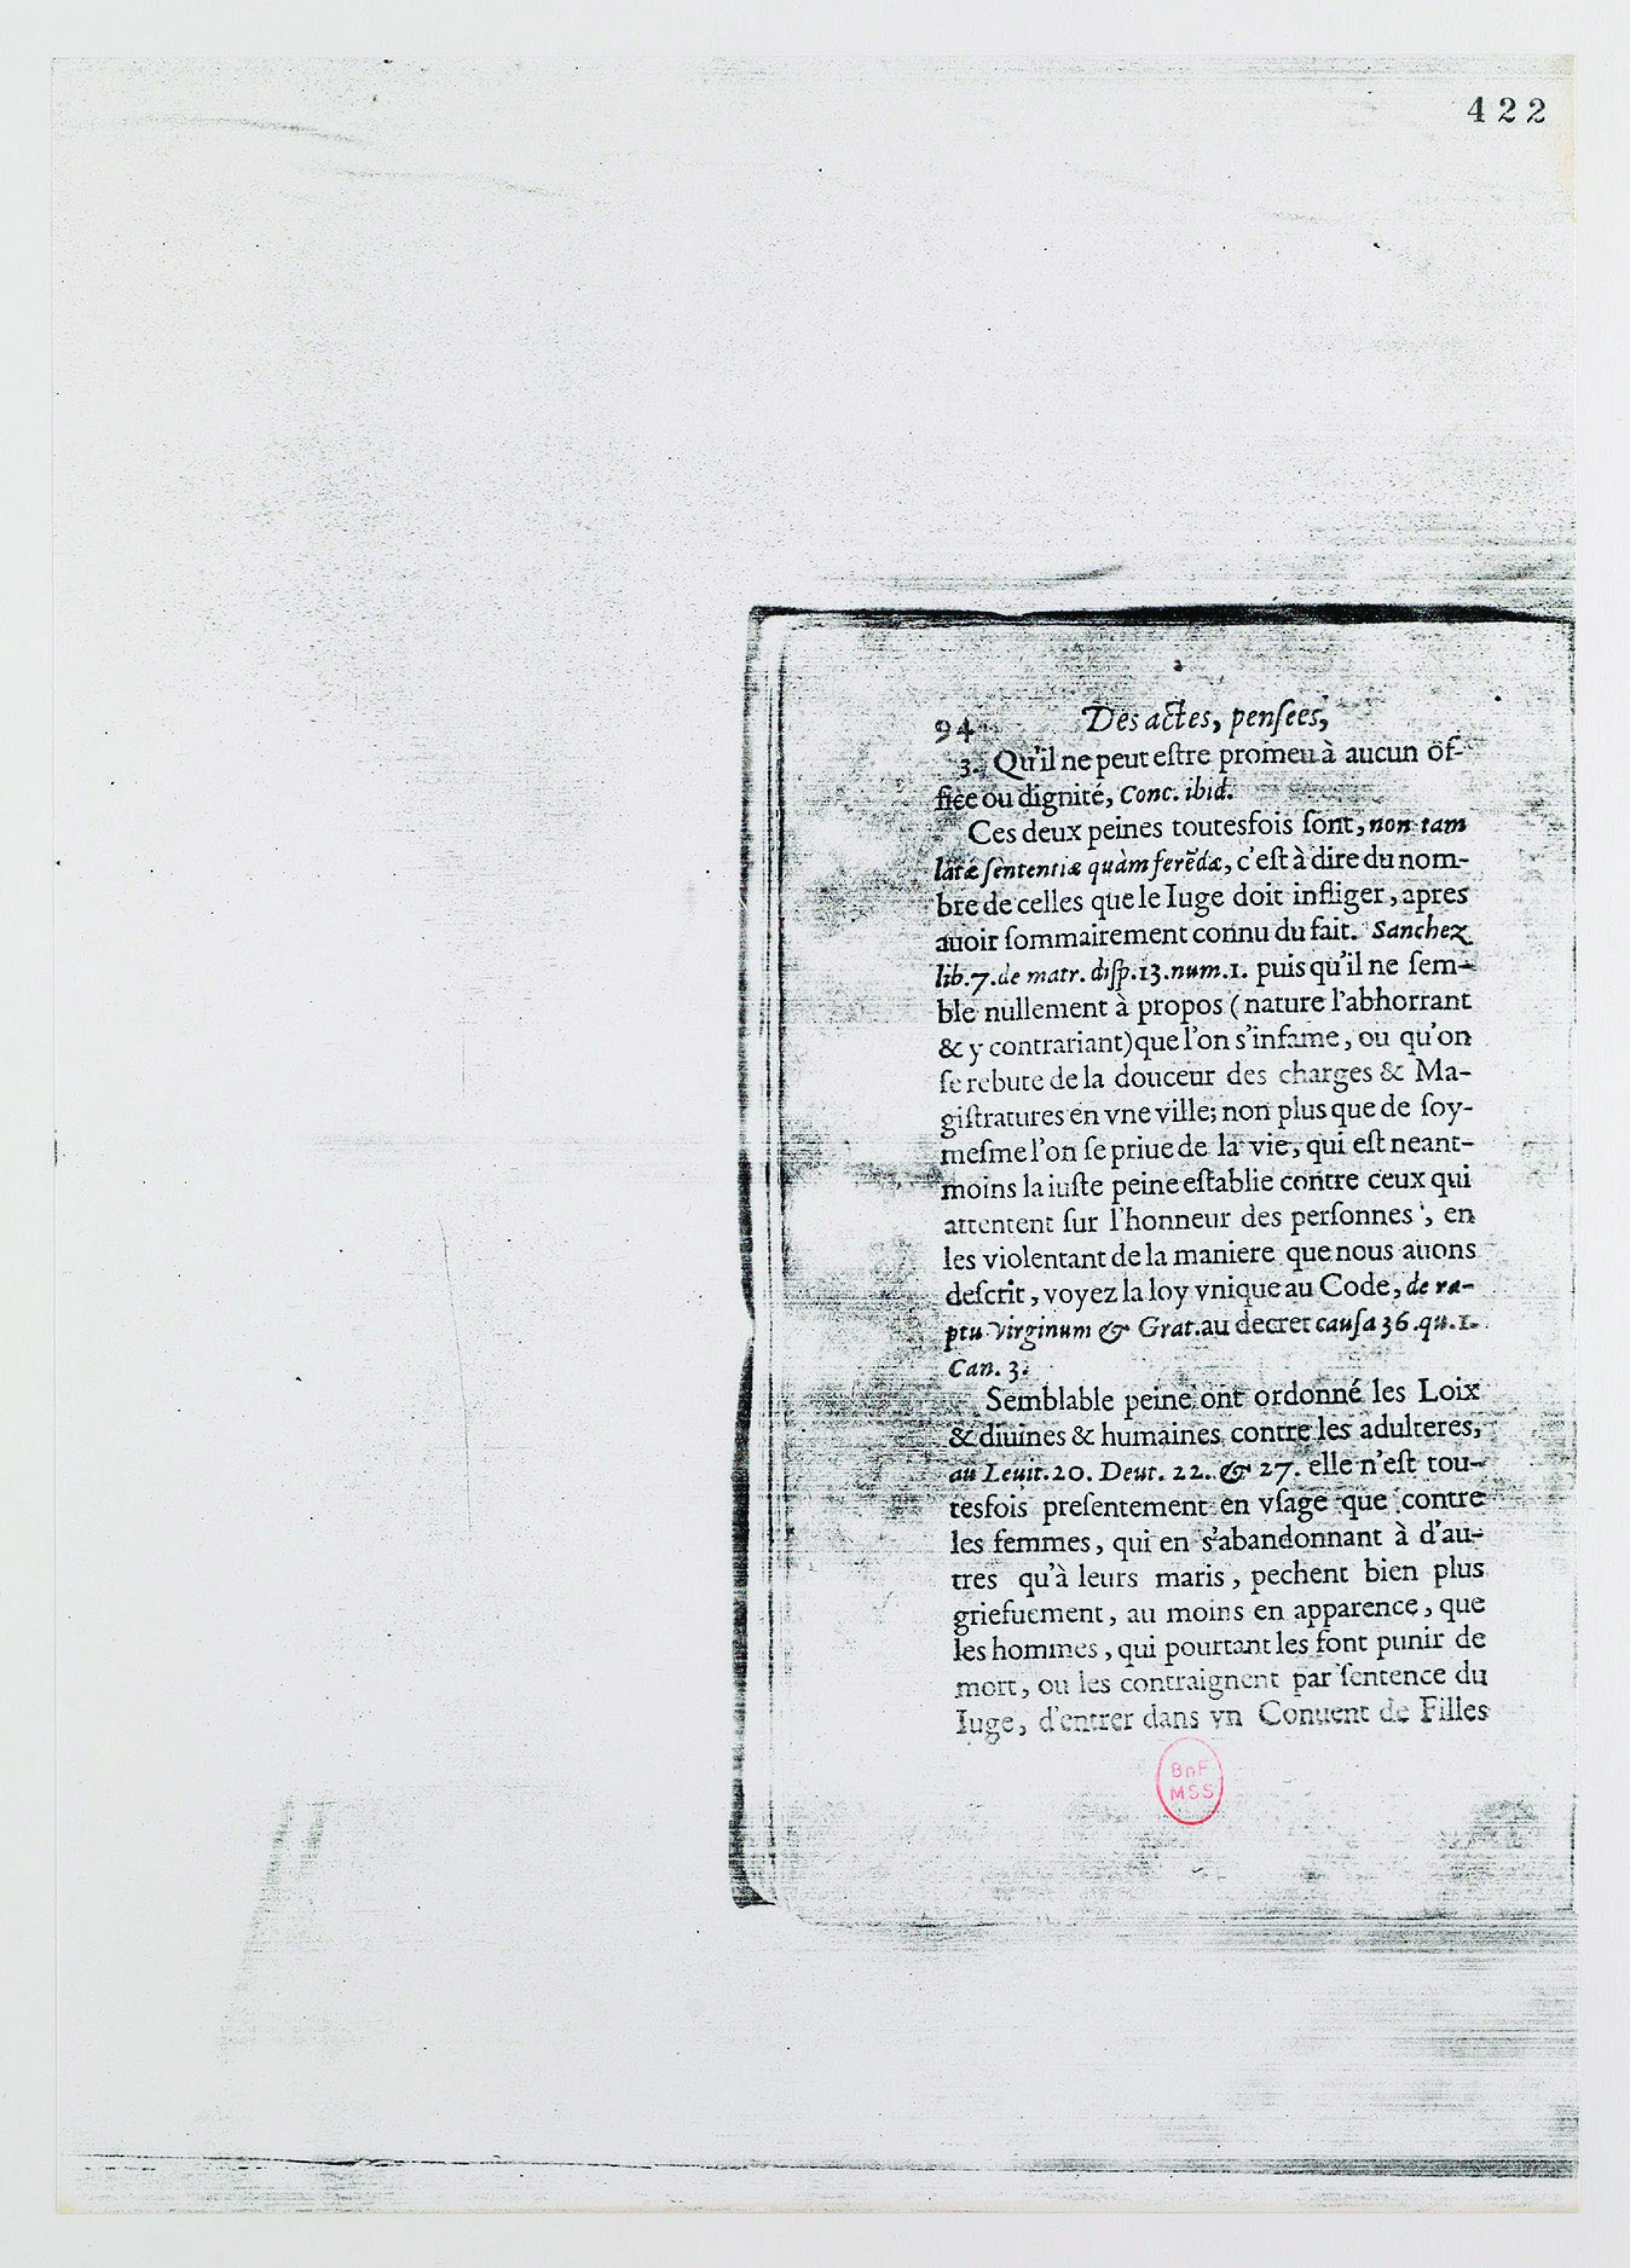 422
94 Des actes, pensees,
3. Qu'il ne peut eſtre promeu à aucun of-
fice ou dignité, Conc. ibid.
Ces deux peines toutesfois ſont, non tam
latæ ſententiæ quàm ferẽdæ, c'eſt à dire du nom-
bre de celles que le Iuge doit infliger, apres
auoir ſommairement connu du fait. Sanchez
lib.7.de matr. diſp.13.num.1. puis qu'il ne ſem-
ble nullement à propos (nature l'abhorrant
& y contrariant) que l'on s'infame, ou qu'on
ſe rebute de la douceur des charges & Ma-
giſtratures en vne ville; non plus que de ſoy-
meſme l'on ſe priue de la vie, qui eſt neant-
moins la iuſte peine eſtablie contre ceux qui
attentent ſur l'honneur des perſonnes, en
les violentant de la maniere que nous auons
deſcrit, voyez la loy vnique au Code, de ra-
ptu virginum & Grat. au decret cauſa 36.qu.1.
Can. 3.
Semblable peine ont ordonné les Loix
& diuines & humaines contre les adulteres,
au Leuit.20. Deut. 22. & 27. elle n'eſt tou-
tesfois preſentement en vſage que contre
les femmes, qui en s'abandonnant à d'au-
tres qu'à leurs maris, pechent bien plus
griefuement, au moins en apparence, que
les hommes, qui pourtant les font punir de
mort, ou les contraignent par ſentence du
Iuge, d'entrer dans vn Conuent de Filles
BnF
MSS